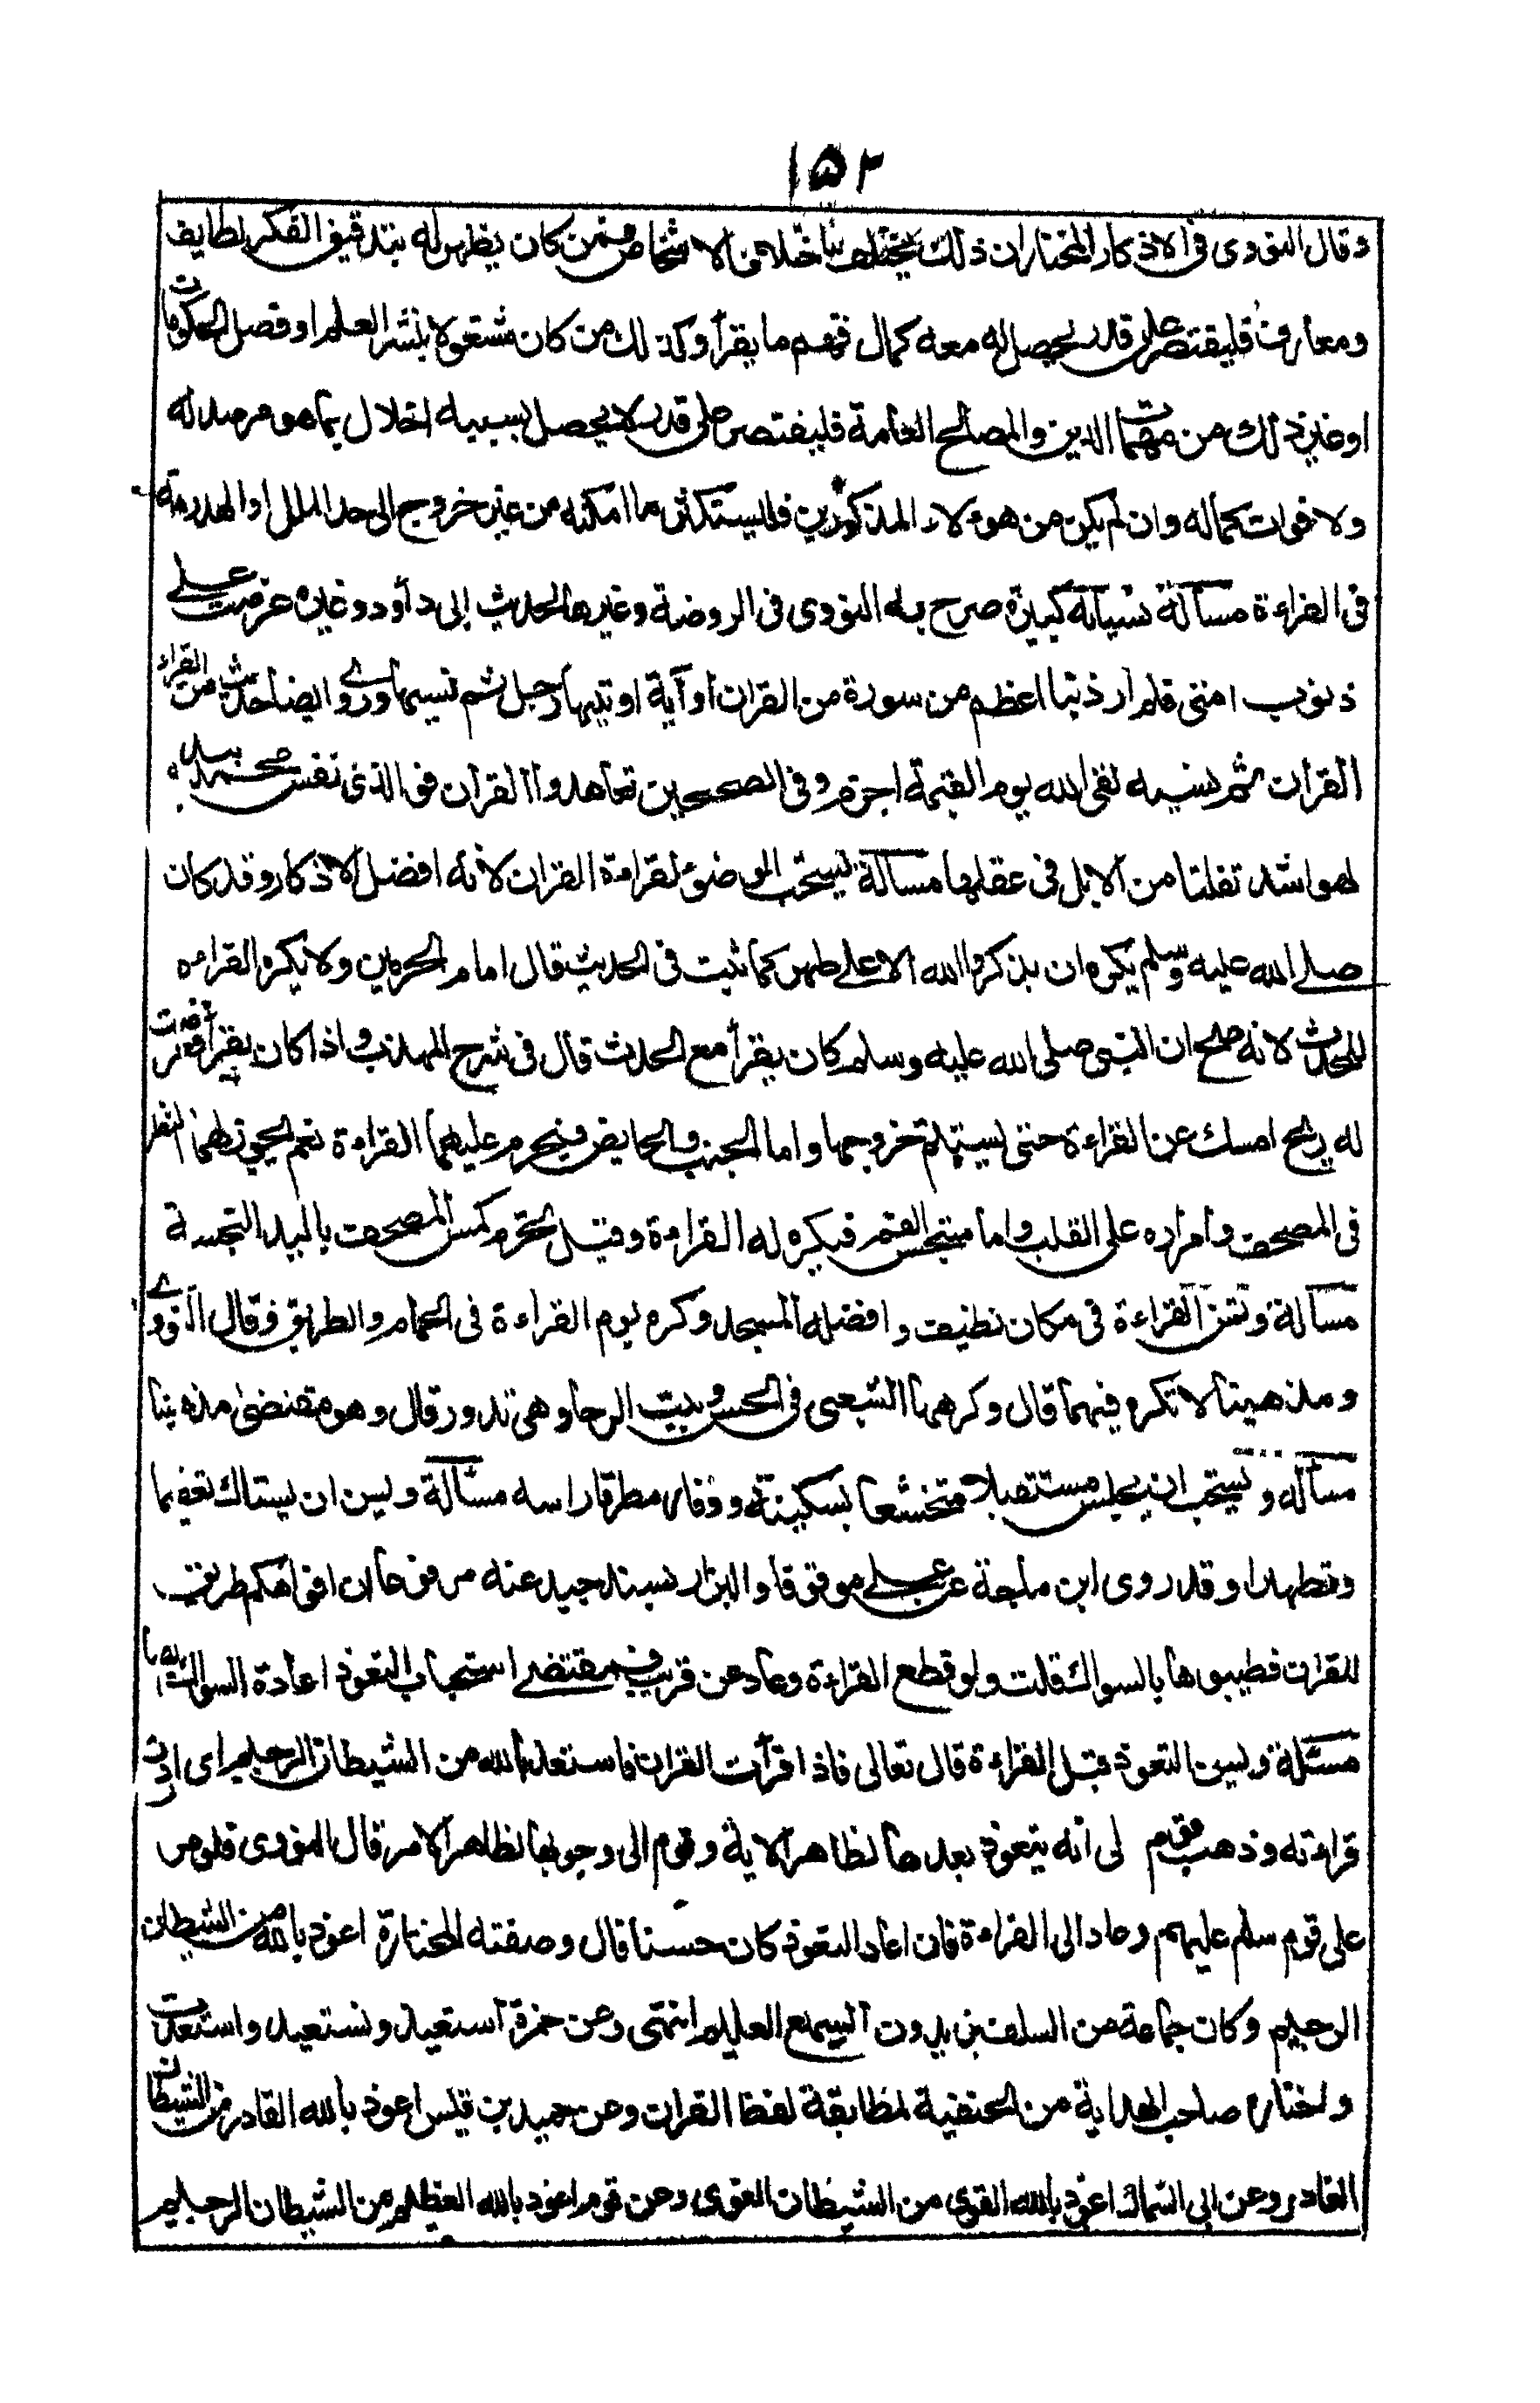 ١٥٢
وقال النووى فى الاذكار المختار ان ذلك يختلف باختلاف الاشخاص فمن كان يظهر له بتدقيق الفكر لطايف
ومعارف فليقتصر على قدر يحصل له معه كمال فهم ما يقرأ وكذلك من كان مشغولا بنشر العلم او فصل الحكومات
او غير ذلك من مهمات الدين والمصالح العامة فليقتصر على قدر لا يحصل بسببه اخلال بما هو مرصد له
ولا فوات كماله وان لم يكن من هوءلاء المذكورين فليستكثر ما امكنه من غير خروج الى حد الملل او الهذرمة
فى القراءة مسألة نسيانه كبيرة صرح به النووى فى الروضة وغيرها لحديث ابى داود وغيره عرضت على
ذنوب امتى فلم ار ذنبا اعظم من سورة من القران او آية اوتيها رجل ثم نسيها وروى ايضا حديث من قرأ
القرآن ثم نسيه لقى الله يوم القيمة اجزم وفى الصحيحين تعاهدوا القرآن فو الذى نفس محمد بيده
لهو اشد تفلتا من الابل فى عقلها مسألة يستحب الوضوء لقراءة القران لانه افضل الاذكار وقد كان
صلى الله عليه وسلم يكره ان يذكر الله الا على طهر كما ثبت فى الحديث قال امام الحرمين ولا يكره القراءه
للمحدث لانه صح ان النبى صلى الله عليه وسلم كان يقرأ مع الحدث قال فى شرح المهذب واذا كان يقرأ فعرضت
له ريح امسك عن القراءة حتى يستتم خروجها واما الجنب والحايض فيحرم عليهما القراءة نعم يجوز لهما النظر
فى المصحف وامراره على القلب واما متنجس الفم فيكره له القراءة وقيل تحرم كمس المصحف باليد النجسة
مسألة وتسن القراءة فى مكان نظيف وافضله المسجد وكره قوم القراءة فى الحمام والطريق وقال النووى
ومذهبنا لا تكره فيهما قال وكرهها الشعبى فى الحش وبيت الرحا وهى تدور قال وهو مقتضى مذهبنا
مسأله ويستحب ان يجلس مستقبلا متخشعا بسكينة ووقار مطرقا راسه مسألة ويسن ان يستاك تعظيما
وتطهيرا وقد روى ابن ماجة عن على موقوفا والبزار بسند جيد عنه مرفوعا ان افواهكم طرق
للقران فطيبوها بالسواك قلت ولو قطع القراءة وعاد عن قريب فمقتضى استحباب التعوذ اعادة السواك ايضا
مسئلة ويسن التعوذ قبل القراءة قال تعالى فاذا قرأت القران فاستعذ بالله من الشيطان الرجيم اى اردت
قراءته وذهب قوم لى انه يتعوذ بعدها لظاهر الاية وقوم الى وجوبها لظاهر الامر قال النووى فلو مر
على قوم سلم عليهم وعاد الى القراءة فان اعاد التعوذ كان حسنا قال وصفته المختارة اعوذ بالله من الشيطان
الرجيم وكان جماعة من السلف يزيدون السميع العليم انتهى وعن حمزة استعيذ ونستعيذ واستعذت
واختاره صاحب الهداية من الحنفية لمطابقة لفظ القران وعن حميد بن قيس اعوذ بالله القادر من الشيطان
الغادر وعن ابى السماك اعوذ بالله القوى من الشيطان الغوى وعن قوم اعوذ بالله العظيم من الشيطان الرجيم